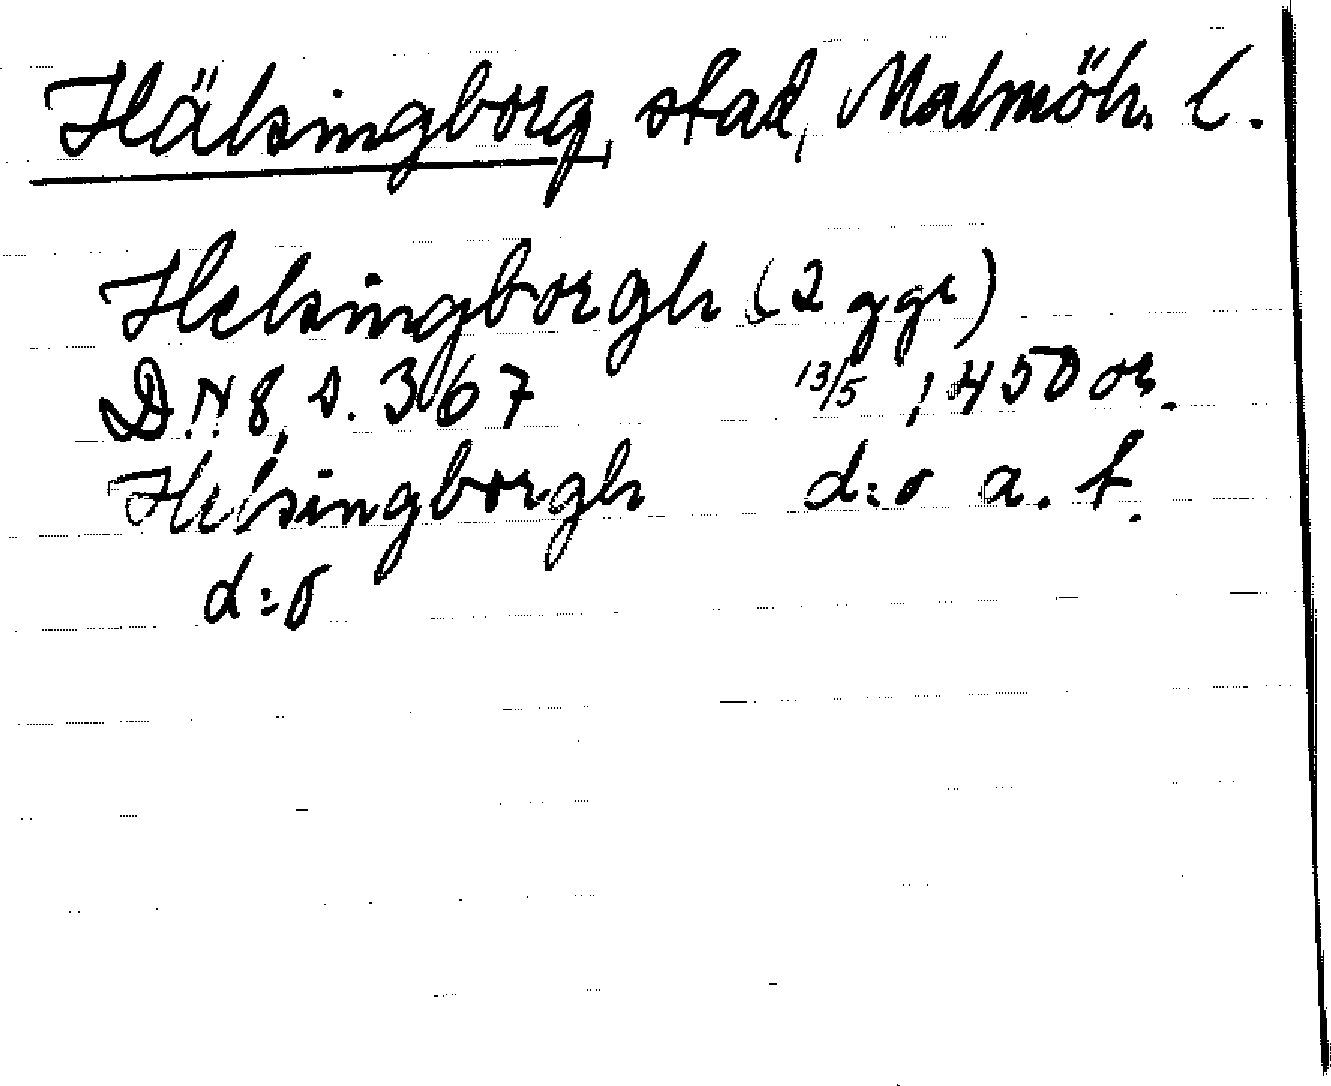 Hälsingborg, stad, Malmöh. l.
Helsingborgh (2 ggr)
D.N. 8, s. 367 13/5 1450 or.
Helsingborgh d:o a. f.
d:o